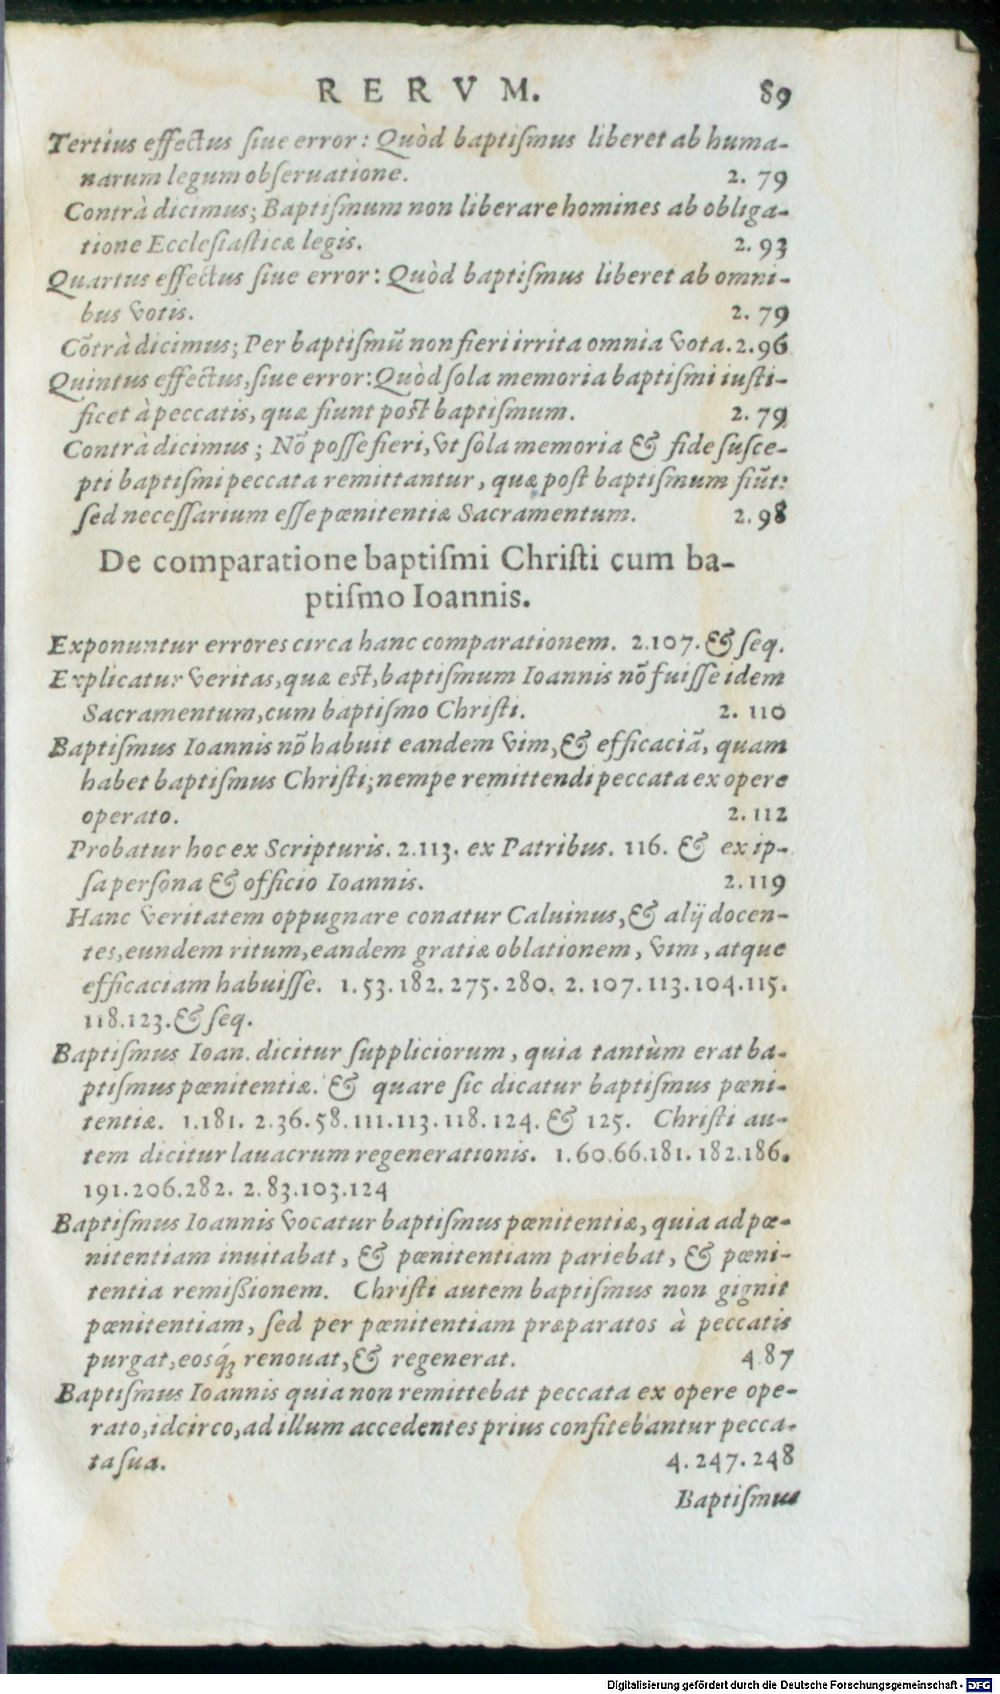 RERVM. 89
Tertius effectus siue error: Quòd baptiſmus liberet ab huma-
narum legum obſeruatione. 2. 79
Contrà dicimus; Baptiſmum non liberare homines ab obliga-
tione Eccleſiaſticæ legis. 2. 93
Quartus effectus ſiue error: Quòd baptiſmus liberet ab omni-
bus votis. 2. 79
Cõtrà dicimus; Per baptiſmũ non fieri irrita omnia vota. 2.96
Quintus effectus, ſiue error: Quòd ſola memoria baptiſmi iuſti-
ficet à peccatis, quæ fiunt poſt baptiſmum. 2. 79
Contrà dicimus; Nõ poſſe fieri, vt ſola memoria & fide ſuſce-
pti baptiſmi peccata remittantur, quæ poſt baptiſmum fiũt:
ſed neceſſarium eſſe pœnitentiæ Sacramentum. 2. 98
De comparatione baptiſmi Chriſti cum ba-
ptiſmo Ioannis.
Exponuntur errores circa hanc comparationem. 2.107. & ſeq.
Explicatur veritas, quæ eſt, baptiſmum Ioannis nõ fuiſſe idem
Sacramentum, cum baptiſmo Chriſti. 2. 110
Baptiſmus Ioannis nõ habuit eandem vim, & efficaciã, quam
habet baptiſmus Chriſti; nempe remittendi peccata ex opere
operato. 2.112
Probatur hoc ex Scripturis. 2.113. ex Patribus. 116. & ex ip-
ſa perſona & officio Ioannis. 2.119
Hanc veritatem oppugnare conatur Caluinus, & alij docen-
tes, eundem ritum, eandem gratiæ oblationem, vim, atque
efficaciam habuiſſe. 1.53.182.275.280. 2.107.113.104.115.
118.123. & ſeq.
Baptiſmus Ioan. dicitur ſuppliciorum, quia tantùm erat ba-
ptiſmus pœnitentiæ. & quare ſic dicatur baptiſmus pœni-
tentiæ. 1.181. 2.36.58.111.113.118.124. & 125. Chriſti au-
tem dicitur lauacrum regenerationis. 1.60.66.181.182.186.
191.206.282. 2.83.103.124
Baptiſmus Ioannis vocatur baptiſmus pœnitentiæ, quia ad pœ-
nitentiam inuitabat, & pœnitentiam pariebat, & pœni-
tentia remißionem. Chriſti autem baptiſmus non gignit
pœnitentiam, ſed per pœnitentiam præparatos à peccatis
purgat, eosq́ꝫ renouat, & regenerat. 4.87
Baptiſmus Ioannis quia non remittebat peccata ex opere ope-
rato, idcirco, ad illum accedentes prius confitebantur pecca-
ta ſua. 4.247.248
Baptiſmus
Digitalisierung gefördert durch die Deutsche Forschungsgemeinschaft - DFG